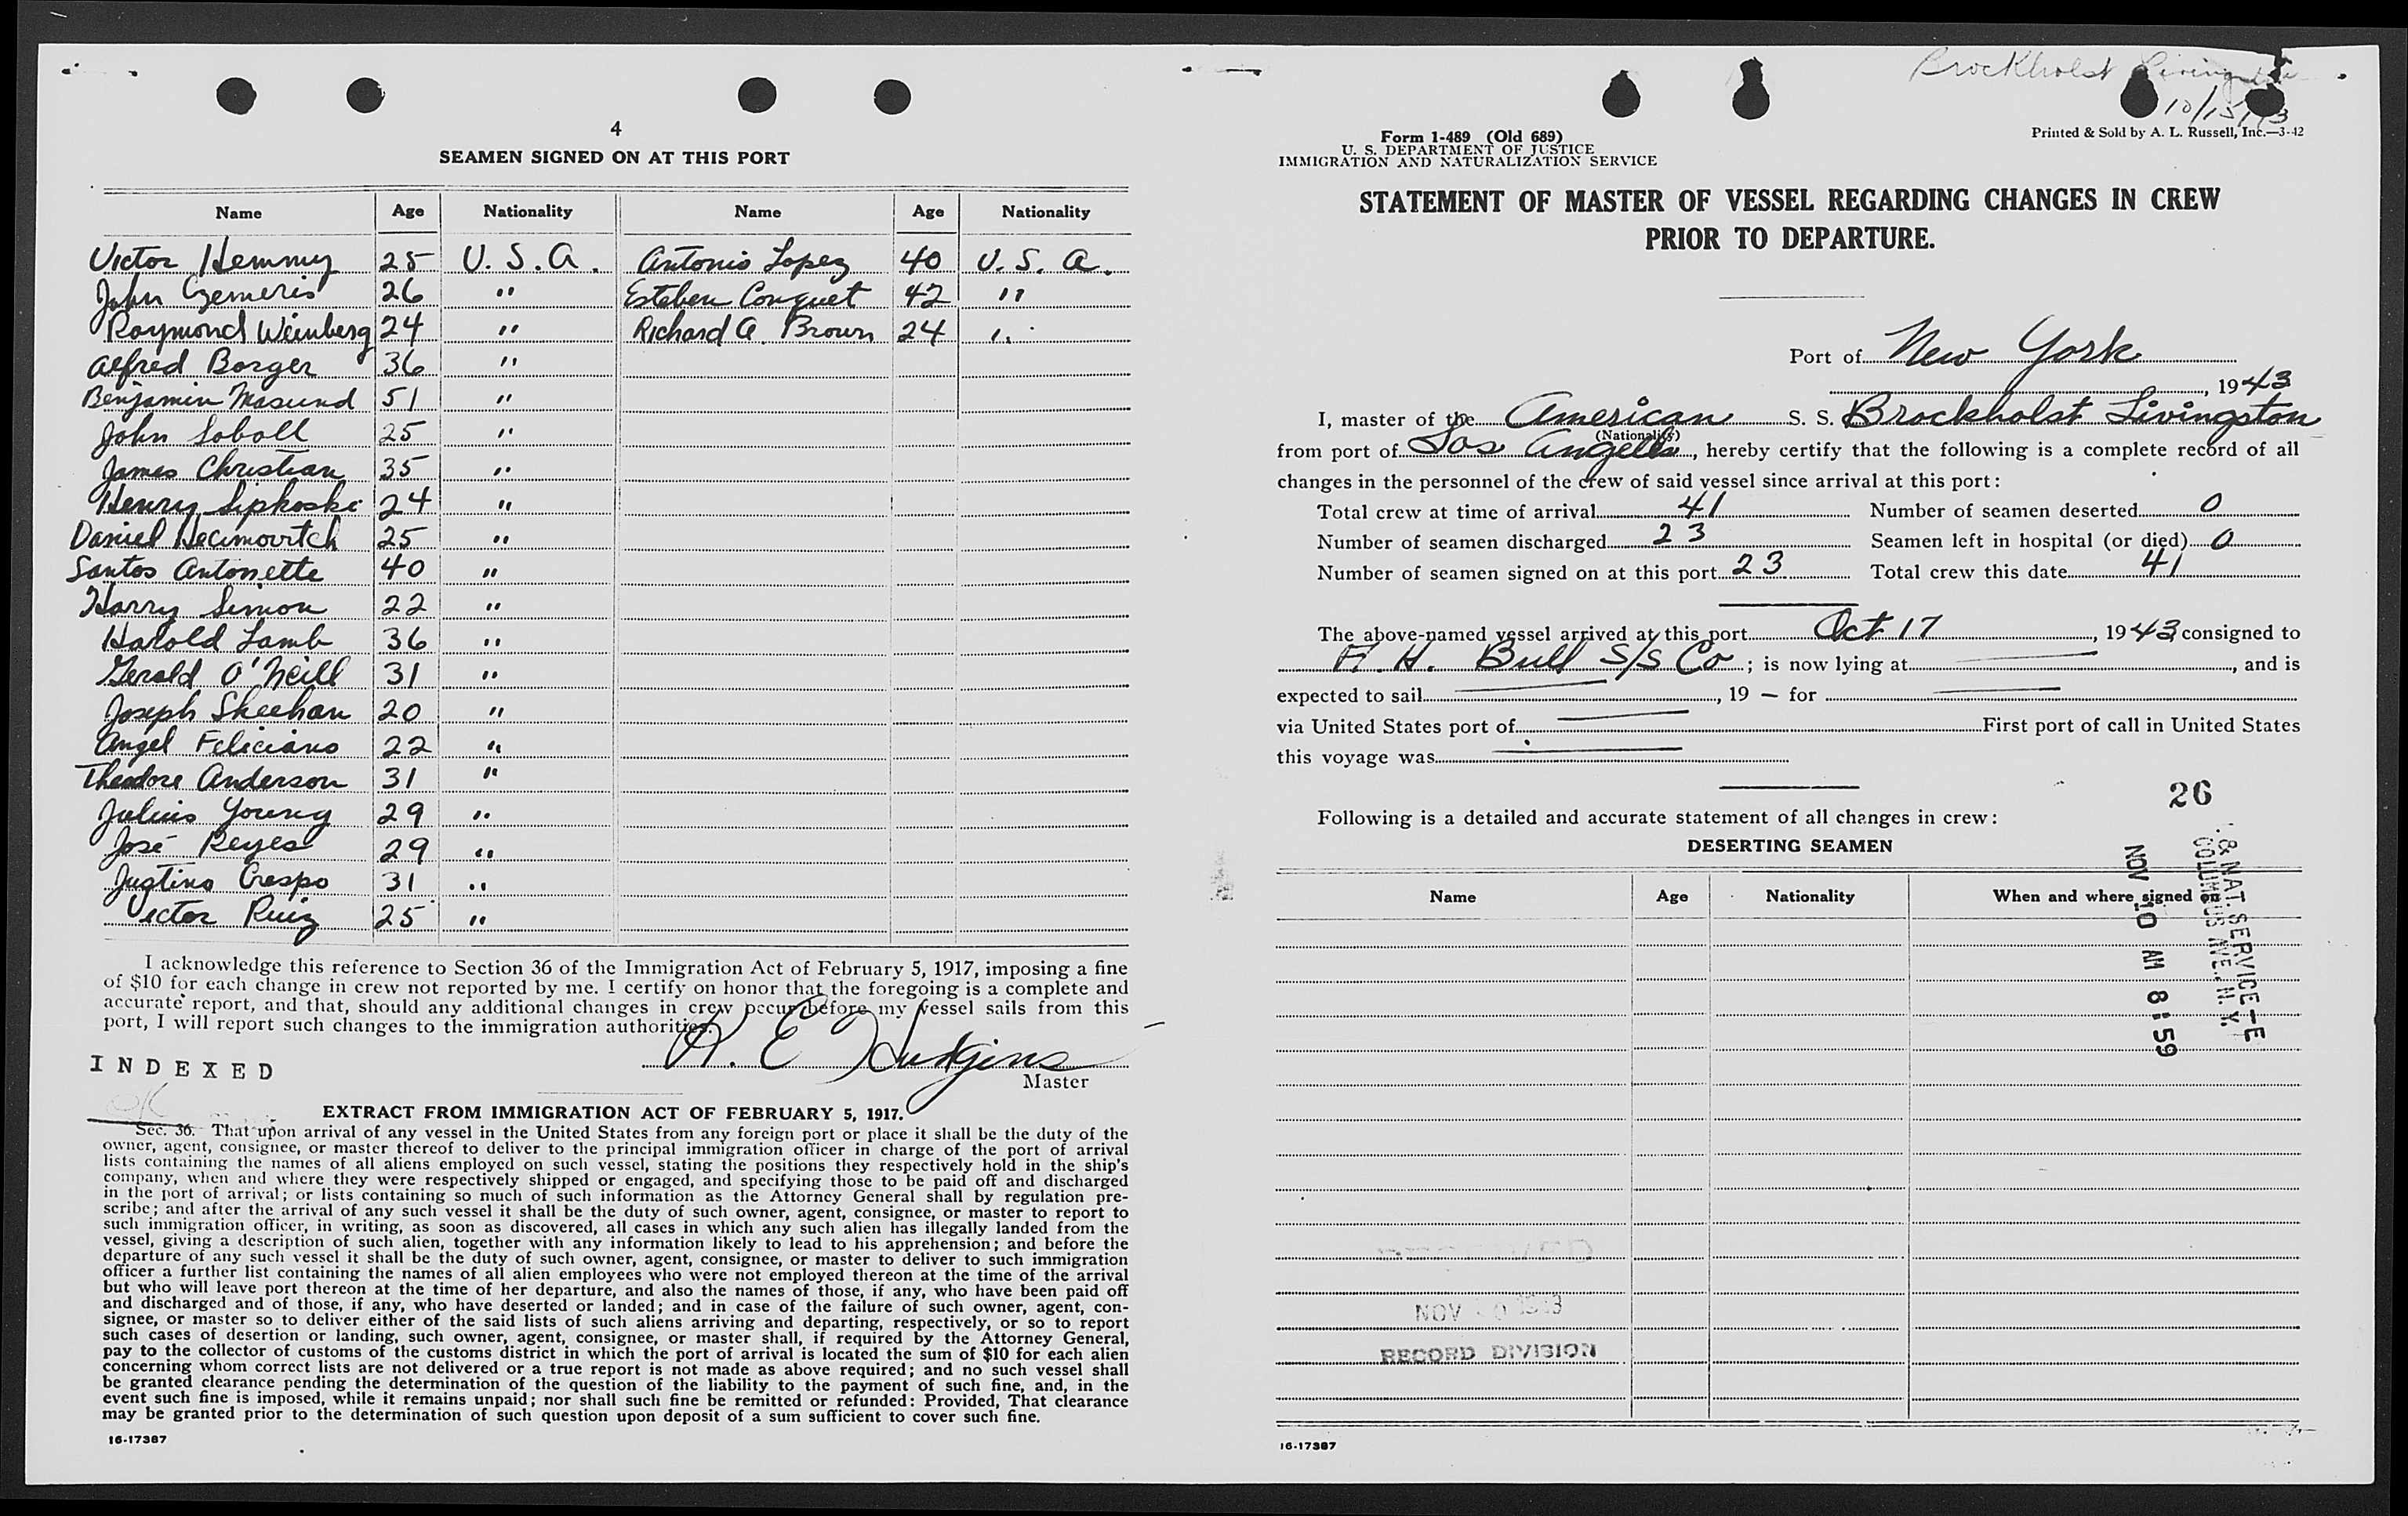 4
SEAMEN SIGNED ON AT THIS PORT
Name Age Nationality Name Age Nationality
Victor Hemmy 25 U.S.A. Antonio Lopez 40 U.S.A.
John Gemeris 26 " Esteben Conquet 42 "
Raymond Weinberg 24 " Richard A. Brown 24 "
Alfred Borger 36 "
Benjamin Masund 51 "
John Soboll 25 "
James Christian 35 "
Henry Sipkoski 24 "
Daniel Hecimovitch 25 "
Santos Antonette 40 "
Harry Simon 22 "
Harold Lamb 36 "
Gerald O'Neill 31 "
Joseph Sheehan 20 "
Angel Feliciano 22 "
Theodore Anderson 31 "
Julius Young 29 "
José Reyes 29 "
Justino Crespo 31 "
Victor Ruiz 25 "
I acknowledge this reference to Section 36 of the Immigration Act of February 5, 1917, imposing a fine
of $10 for each change in crew not reported by me. I certify on honor that the foregoing is a complete and
accurate report, and that, should any additional changes in crew occur before my vessel sails from this
port, I will report such changes to the immigration authorities.
H. E. Hudgins
Master
INDEXED
OK
EXTRACT FROM IMMIGRATION ACT OF FEBRUARY 5, 1917.
Sec. 36. That upon arrival of any vessel in the United States from any foreign port or place it shall be the duty of the
owner, agent, consignee, or master thereof to deliver to the principal immigration officer in charge of the port of arrival
lists containing the names of all aliens employed on such vessel, stating the positions they respectively hold in the ship's
company, when and where they were respectively shipped or engaged, and specifying those to be paid off and discharged
in the port of arrival; or lists containing so much of such information as the Attorney General shall by regulation pre-
scribe; and after the arrival of any such vessel it shall be the duty of such owner, agent, consignee, or master to report to
such immigration officer, in writing, as soon as discovered, all cases in which any such alien has illegally landed from the
vessel, giving a description of such alien, together with any information likely to lead to his apprehension; and before the
departure of any such vessel it shall be the duty of such owner, agent, consignee, or master to deliver to such immigration
officer a further list containing the names of all alien employees who were not employed thereon at the time of the arrival
but who will leave port thereon at the time of her departure, and also the names of those, if any, who have been paid off
and discharged and of those, if any, who have deserted or landed; and in case of the failure of such owner, agent, con-
signee, or master so to deliver either of the said lists of such aliens arriving and departing, respectively, or so to report
such cases of desertion or landing, such owner, agent, consignee, or master shall, if required by the Attorney General,
pay to the collector of customs of the customs district in which the port of arrival is located the sum of $10 for each alien
concerning whom correct lists are not delivered or a true report is not made as above required; and no such vessel shall
be granted clearance pending the determination of the question of the liability to the payment of such fine, and, in the
event such fine is imposed, while it remains unpaid; nor shall such fine be remitted or refunded: Provided, That clearance
may be granted prior to the determination of such question upon deposit of a sum sufficient to cover such fine.
16-17387
Brockholst Livingston
10/15/43
Form 1-489 (Old 689)
U. S. DEPARTMENT OF JUSTICE
IMMIGRATION AND NATURALIZATION SERVICE
Printed & Sold by A. L. Russell, Inc.—3-42
STATEMENT OF MASTER OF VESSEL REGARDING CHANGES IN CREW
PRIOR TO DEPARTURE.
Port of New York
, 1943
I, master of the American S. S. Brockholst Livingston
(Nationality)
from port of Los Angeles, hereby certify that the following is a complete record of all
changes in the personnel of the crew of said vessel since arrival at this port:
Total crew at time of arrival 41 Number of seamen deserted 0
Number of seamen discharged 23 Seamen left in hospital (or died) 0
Number of seamen signed on at this port 23 Total crew this date 41
The above-named vessel arrived at this port Oct 17, 1943 consigned to
A. H. Bull S/S Co; is now lying at , and is
expected to sail , 19 — for
via United States port of First port of call in United States
this voyage was
26
Following is a detailed and accurate statement of all changes in crew:
DESERTING SEAMEN
Name Age Nationality When and where signed on
& NAT. SERVICE-E
COLUMBUS AVE. N.Y.
NOV 10 AM 8:59
NOV 10 1943
RECORD DIVISION
16-17387